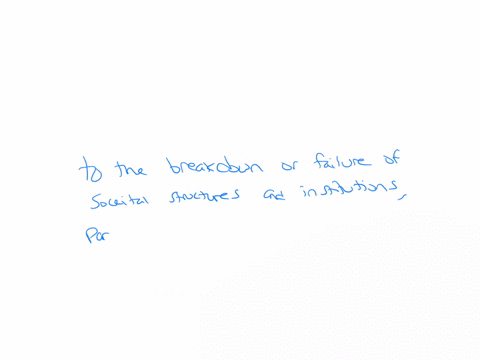 to the breakdown or failure of
Soceital structures and institutions,
Par